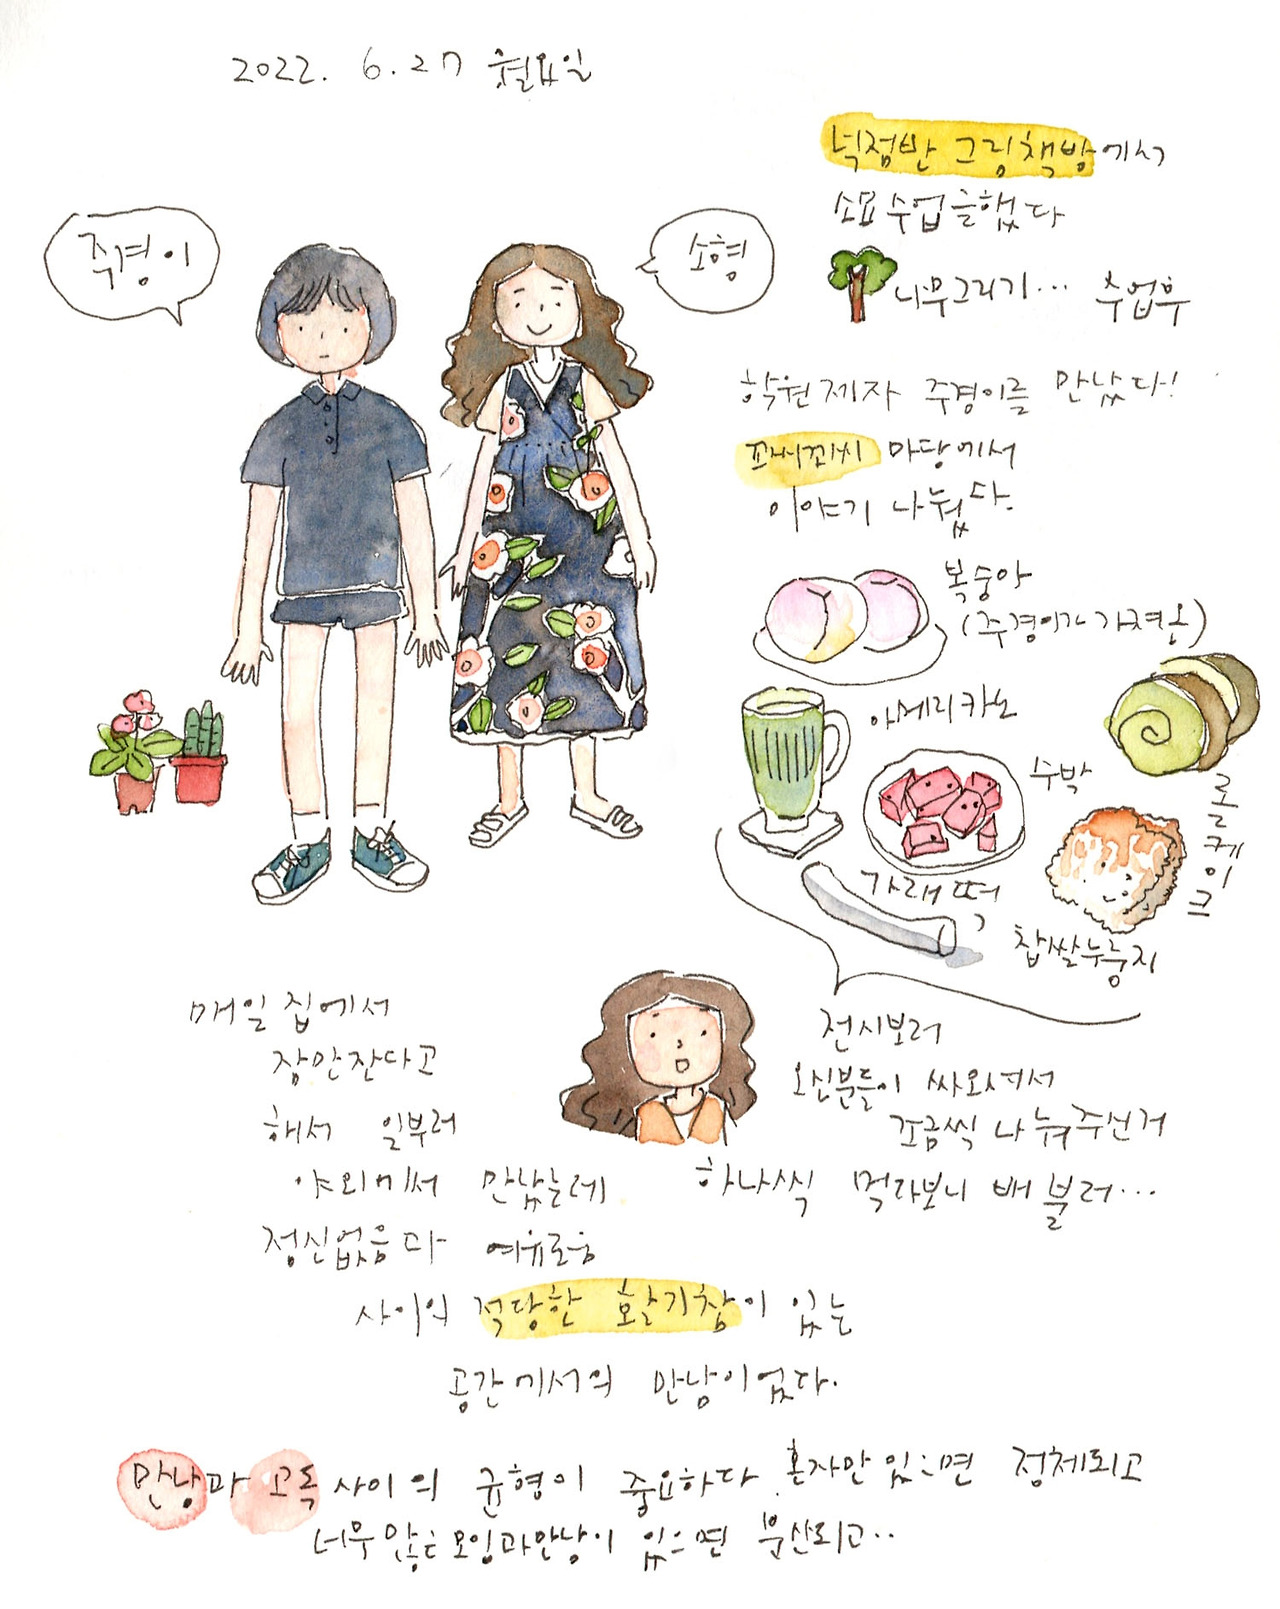 2022. 6. 27 월요일
넉점반 그림책방에서
소묘수업을했다
나무그리기... 수업후
주경이
소형
학원제자 주경이를 만났다!
꼬씨꼬씨 마당에서
이야기 나눴다.
복숭아
(주경이가 가져온)
아메리카노
수박
롤케이크
가래떡
찹쌀누룽지
전시보러
오신분들이 싸오셔서
조금씩 나눠주신거
하나씩 먹다보니 배불러...
매일 집에서
잠만잔다고
해서 일부러
야외에서 만났는데
정신없음과 여유로움
사이의 적당한 활기참이 있는
공간에서의 만남이었다.
만남과 고독 사이의 균형이 중요하다. 혼자만 있으면 정체되고
너무 많은 모임과만남이 있으면 분산되고..